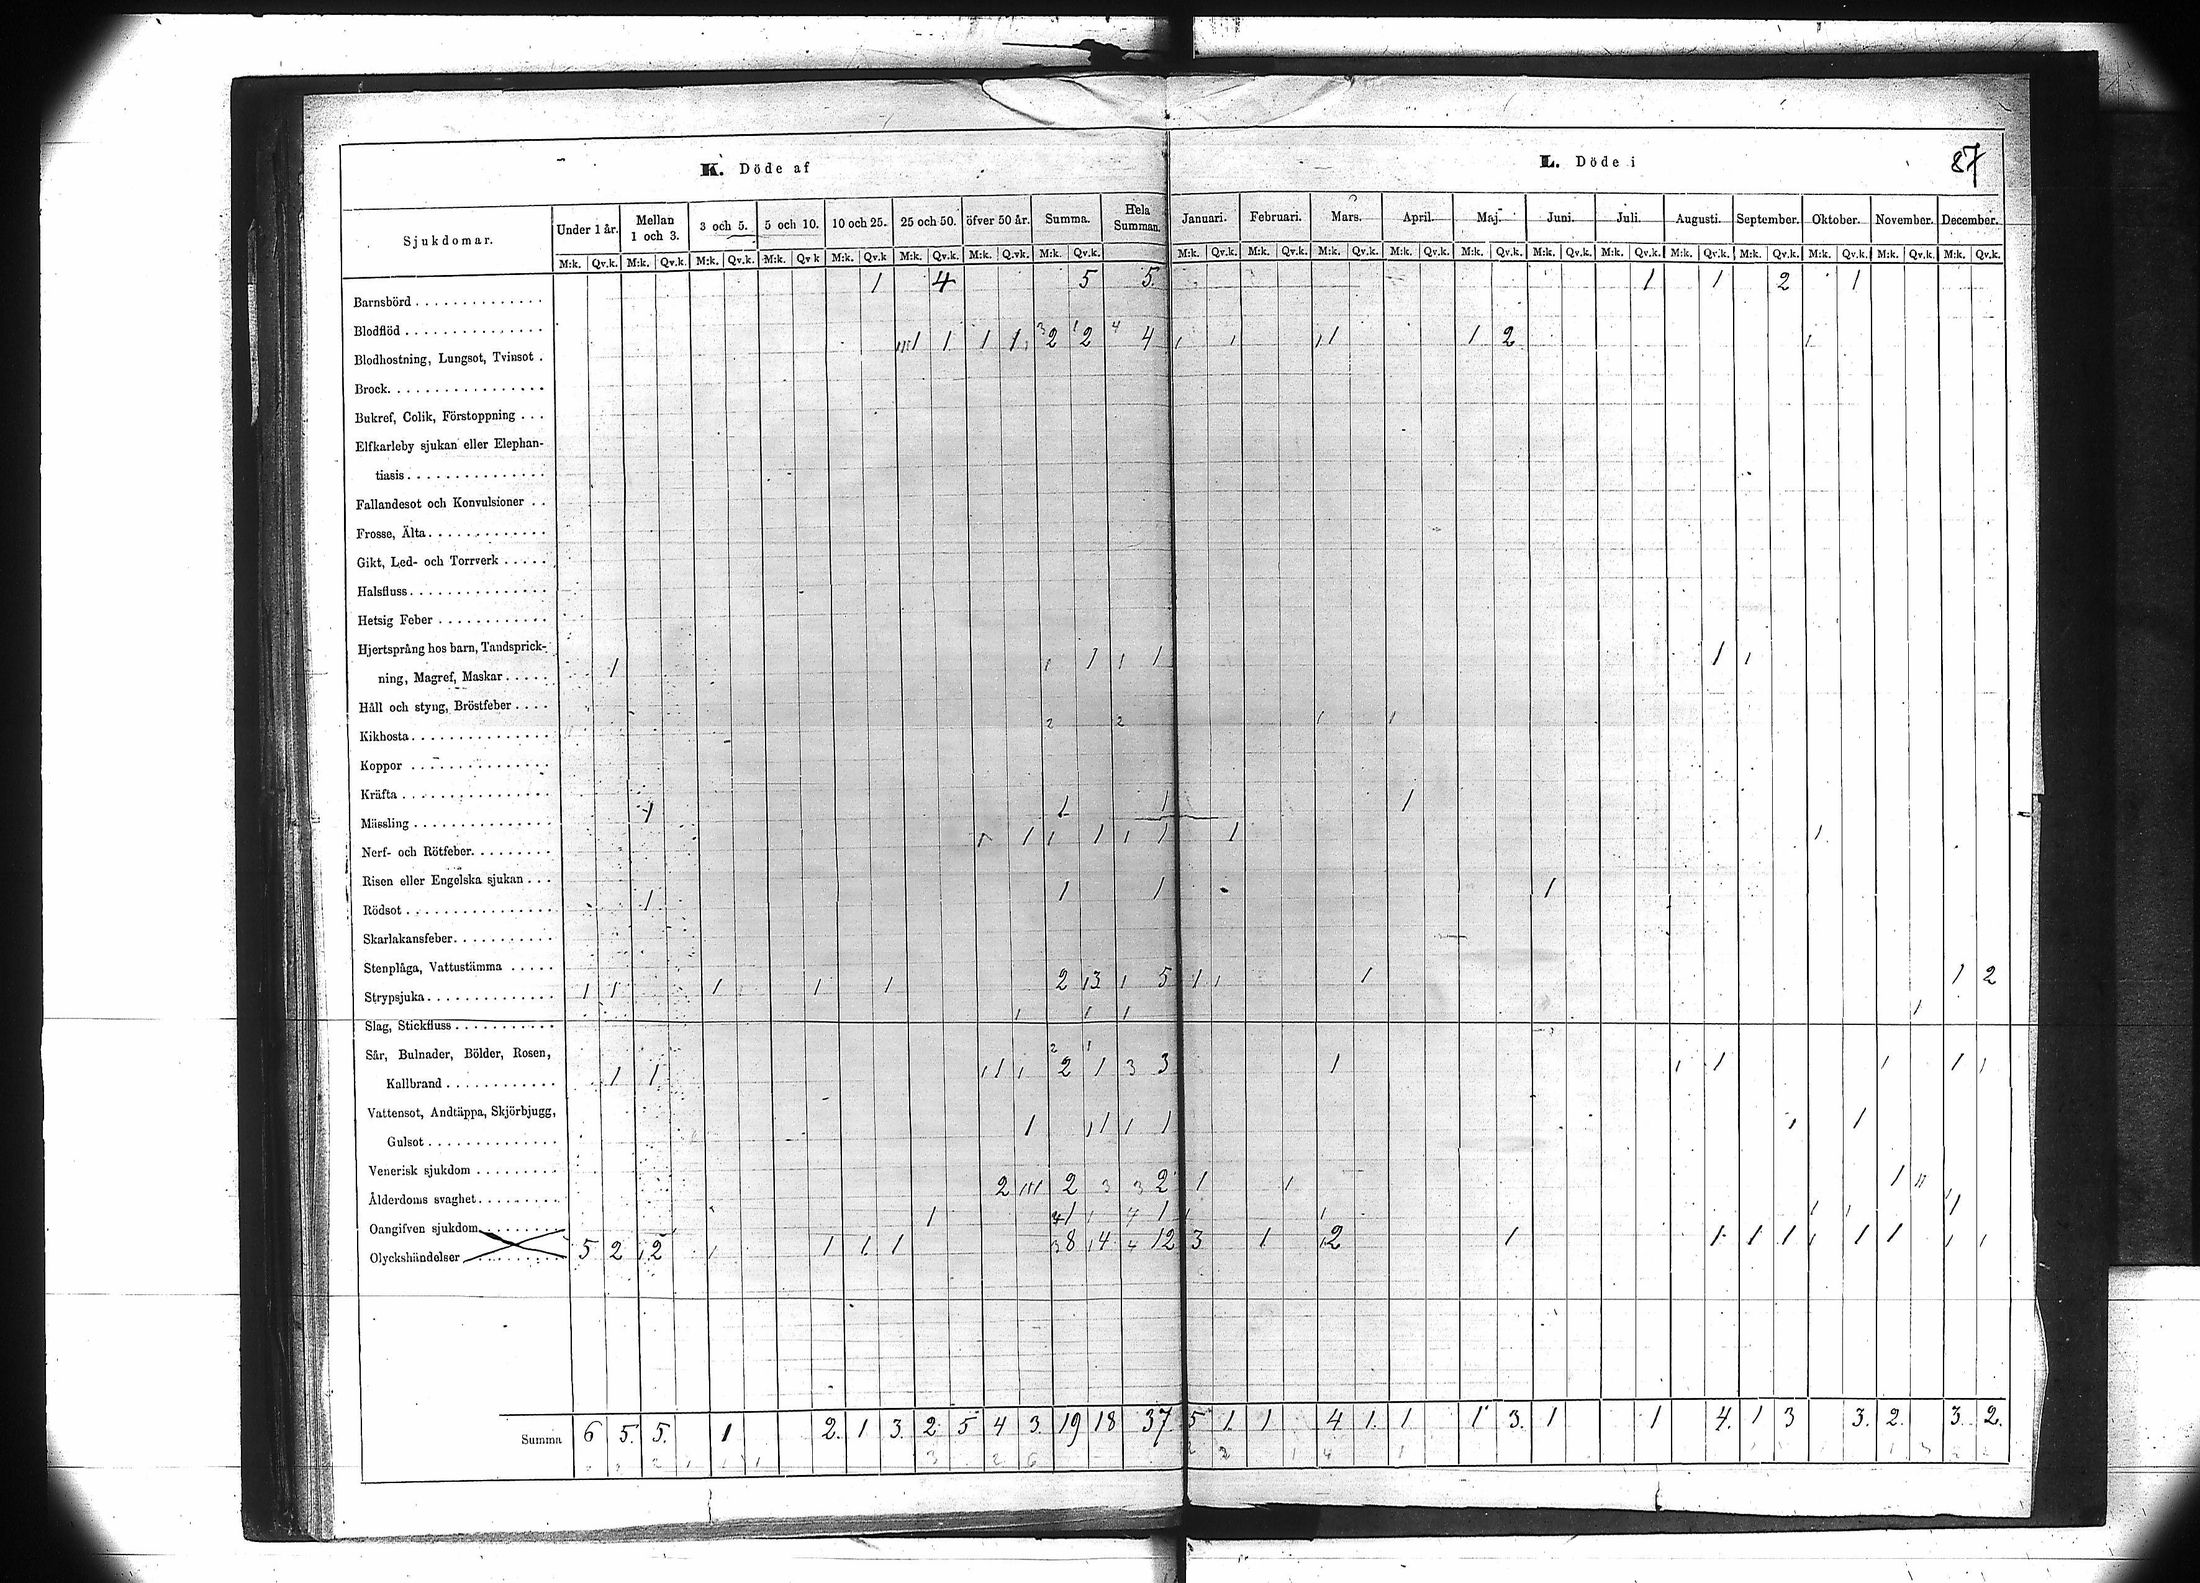 K. Döde af
L. Döde i
87
Sjukdomar. Under 1 år. Mellan 1 och 3. 3 och 5. 5 och 10. 10 och 25. 25 och 50. öfver 50 år. Summa. Hela Summan. Januari. Februari. Mars. April. Maj. Juni. Juli. Augusti. September. Oktober. November. December.
M:k. Qv.k. M:k. Qv.k. M:k. Qv.k. M:k. Qv k M:k. Qv.k M:k. Qv.k. M:k. Qv.k. M:k. Qv.k. M:k. Qv.k. M:k. Qv.k. M:k. Qv.k. M:k. Qv.k. M:k. Qv.k. M:k. Qv.k. M:k. Qv.k. M:k. Qv.k. M:k. Qv.k. M:k. Qv.k. M:k. Qv.k. M:k. Qv.k.
Barnsbörd . . . . . . . . . . . . . . 1 4 5 5. 1 1 2 1
Blodflöd . . . . . . . . . . . . . . .
Blodhostning, Lungsot, Tvinsot . 1 1 1 1 3 2 1 2 4 4 1 1 1 1 1 2 1
Brock. . . . . . . . . . . . . . . . .
Bukref, Colik, Förstoppning . . .
Elfkarleby sjukan eller Elephan-
tiasis . . . . . . . . . . . . . . .
Fallandesot och Konvulsioner . .
Frosse, Älta . . . . . . . . . . . . .
Gikt, Led- och Torrverk . . . . .
Halsfluss . . . . . . . . . . . . . . .
Hetsig Feber . . . . . . . . . . . .
Hjertsprång hos barn, Tandsprick-
ning, Magref, Maskar . . . . . 1 1 1 1 1 1 1
Håll och styng, Bröstfeber . . . .
Kikhosta . . . . . . . . . . . . . . . 2 2 1 1
Koppor . . . . . . . . . . . . . . .
Kräfta . . . . . . . . . . . . . . . .
Mässling . . . . . . . . . . . . . . . 1 1 1 1
Nerf- och Rötfeber. . . . . . . . . 1 1 1 1 1 1 1 1
Risen eller Engelska sjukan . . .
Rödsot . . . . . . . . . . . . . . . . 1 1 1 1
Skarlakansfeber. . . . . . . . . . .
Stenplåga, Vattustämma . . . . .
Strypsjuka . . . . . . . . . . . . . . 1 1 1 1 1 2 1 3 1 5 1 1 1 1 2
Slag, Stickfluss . . . . . . . . . . . 1 1 1 1
Sår, Bulnader, Bölder, Rosen,
Kallbrand . . . . . . . . . . . . 1 1 1 1 1 2 2 1 1 3 3 1 1 1 1 1 1
Vattensot, Andtäppa, Skjörbjugg,
Gulsot . . . . . . . . . . . . . . 1 1 1 1 1 1 1
Venerisk sjukdom . . . . . . . . .
Ålderdoms svaghet . . . . . . . . . 2 111 2 3 3 2 1 1 1 11
Oangifven sjukdom . . . . . . . . 1 1 1 1 1 1 1 1 1
Olyckshändelser . . . . . . . . . . 5 2 1 2 1 1 1 1 3 8 1 4 4 12 3 1 1 2 1 1 1 1 1 1 1 1 1
Summa 6 5. 5. 1 2. 1 3. 2 5 4 3. 19 18 37. 5 1. 1 4 1. 1 1 3. 1 1 4. 1 3 3. 2. 3. 2.